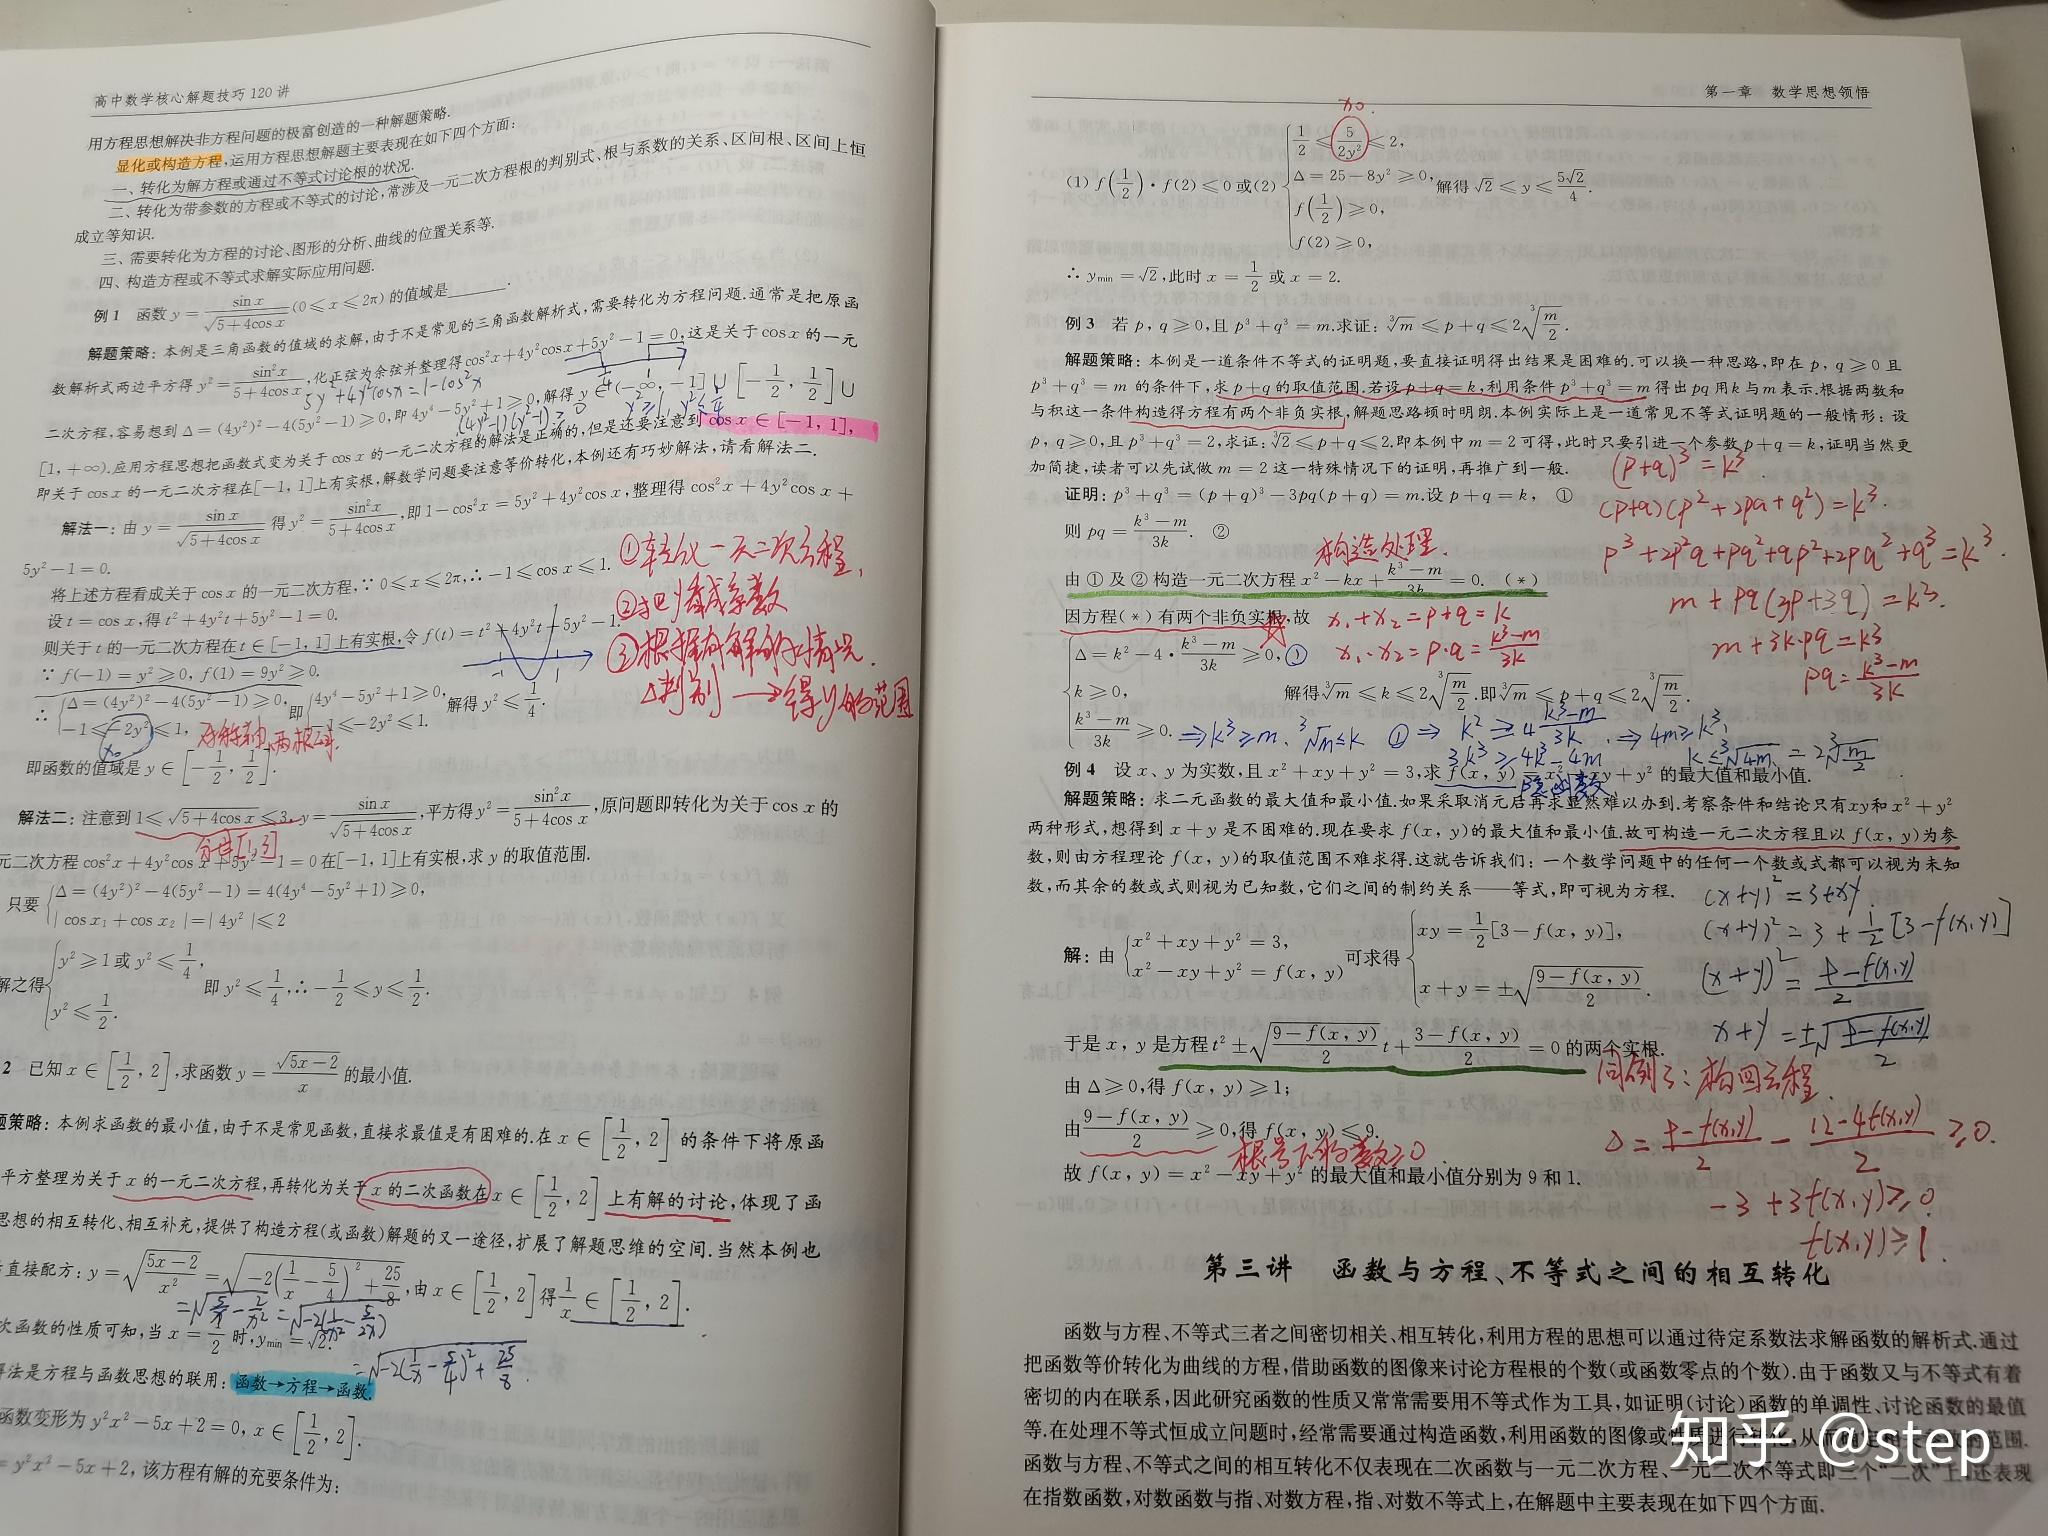 高中数学核心解题技巧120讲
用方程思想解决非方程问题的极富创造的一种解题策略.
显化或构造方程,运用方程思想解题主要表现在如下四个方面:
一、转化为解方程或通过不等式讨论根的状况.
二、转化为带参数的方程或不等式的讨论,常涉及一元二次方程根的判别式、根与系数的关系、区间根、区间上恒
成立等知识.
三、需要转化为方程的讨论、图形的分析、曲线的位置关系等.
四、构造方程或不等式求解实际应用问题.
例1 函数 y = sin x/√(5+4cos x) (0 ≤ x ≤ 2π) 的值域是______.
解题策略:本例是三角函数的值域的求解,由于不是常见的三角函数解析式,需要转化为方程问题.通常是把原函
数解析式两边平方得 y² = sin²x/(5+4cos x),化正弦为余弦并整理得cos²x+4y²cos x+5y²-1=0,这是关于cos x 的一元
5y²+4y²cosx=1-cos²x
二次方程,容易想到 Δ=(4y²)²-4(5y²-1)≥0,即 4y⁴-5y²+1≥0,解得 y∈(-∞,-1]∪[-1/2, 1/2]∪
(4y²-1)(y²-1)≥0 y²≥1, y²≤1/4
[1,+∞).应用方程思想把函数式变为关于 cos x 的一元二次方程的解法是正确的,但是还要注意到 cos x∈[-1,1],
即关于 cos x 的一元二次方程在[-1,1]上有实根,解数学问题要注意等价转化,本例还有巧妙解法,请看解法二.
解法一:由 y = sin x/√(5+4cos x) 得 y² = sin²x/(5+4cos x),即 1-cos²x = 5y²+4y²cos x,整理得 cos²x+4y²cos x+
5y²-1=0.
将上述方程看成关于 cos x 的一元二次方程,∵ 0≤x≤2π,∴ -1≤cos x≤1.
设 t = cos x,得 t²+4y²t+5y²-1=0.
则关于 t 的一元二次方程在 t∈[-1,1]上有实根,令 f(t)=t²+4y²t+5y²-1.
∵ f(-1)=y²≥0, f(1)=9y²≥0.
∴ {Δ=(4y²)²-4(5y²-1)≥0, -1≤-2y²≤1, 即 {4y⁴-5y²+1≥0, -1≤-2y²≤1. 解得 y²≤1/4.
①转化一元二次方程,
②把y看成系数
③根据有解的情况.
Δ判别 → 得y的范围
x₀ 对称轴
即函数的值域是 y∈[-1/2, 1/2].
解法二:注意到 1≤√(5+4cos x)≤3, y = sin x/√(5+4cos x),平方得 y² = sin²x/(5+4cos x),原问题即转化为关于 cos x 的
分母[1,3]
元二次方程 cos²x+4y²cos x+5y²-1=0 在[-1,1]上有实根,求 y 的取值范围.
只要 {Δ=(4y²)²-4(5y²-1)=4(4y⁴-5y²+1)≥0, |cos x₁+cos x₂|=|4y²|≤2
解之得 {y²≥1 或 y²≤1/4, y²≤1/2. 即 y²≤1/4,∴ -1/2≤y≤1/2.
2 已知 x∈[1/2, 2],求函数 y = √(5x-2)/x 的最小值.
题策略:本例求函数的最小值,由于不是常见函数,直接求最值是有困难的.在 x∈[1/2, 2] 的条件下将原函
平方整理为关于 x 的一元二次方程,再转化为关于 x 的二次函数在 x∈[1/2, 2] 上有解的讨论,体现了函
思想的相互转化、相互补充,提供了构造方程(或函数)解题的又一途径,扩展了解题思维的空间.当然本例也
直接配方: y = √((5x-2)/x²) = √(-2(1/x-5/4)²+25/8),由 x∈[1/2, 2] 得 1/x∈[1/2, 2].
=√(5/x-2/x²)=√(-2(1/x²-5/2x))
次函数的性质可知,当 x=1/2 时,y_min=√2.
=√(-2(1/x-5/4)²+25/8).
解法是方程与函数思想的联用:函数→方程→函数.
函数变形为 y²x²-5x+2=0, x∈[1/2, 2].
= y²x²-5x+2,该方程有解的充要条件为:
第一章 数学思想领悟
x₀.
(1) f(1/2)·f(2)≤0 或(2) {1/2≤5/(2y²)≤2, Δ=25-8y²≥0, f(1/2)≥0, f(2)≥0, 解得 √2≤y≤5√2/4.
∴ y_min=√2,此时 x=1/2 或 x=2.
例3 若 p, q≥0,且 p³+q³=m.求证: ∛m≤p+q≤2∛(m/2).
解题策略:本例是一道条件不等式的证明题,要直接证明得出结果是困难的.可以换一种思路,即在 p, q≥0 且
p³+q³=m 的条件下,求 p+q 的取值范围.若设 p+q=k,利用条件 p³+q³=m 得出 pq 用 k 与 m 表示.根据两数和
与积这一条件构造得方程有两个非负实根,解题思路顿时明朗.本例实际上是一道常见不等式证明题的一般情形:设
p, q≥0,且 p³+q³=2,求证: ∛2≤p+q≤2.即本例中 m=2 可得,此时只要引进一个参数 p+q=k,证明当然更
加简捷,读者可以先试做 m=2 这一特殊情况下的证明,再推广到一般.
证明: p³+q³=(p+q)³-3pq(p+q)=m.设 p+q=k, ①
则 pq=(k³-m)/3k. ②
构造处理.
由①及②构造一元二次方程 x²-kx+(k³-m)/3k=0. (*)
因方程(*)有两个非负实根,故
x₁+x₂=p+q=k
x₁·x₂=p·q=(k³-m)/3k
{Δ=k²-4·(k³-m)/3k≥0, k≥0, (k³-m)/3k≥0. 解得∛m≤k≤2∛(m/2).即∛m≤p+q≤2∛(m/2).
⇒k³≥m. ∛m≤k ①⇒ k²≥4(k³-m)/3k. ⇒4m≥k³,
3k³≥4k³-4m k≤∛4m=2∛(m/2)
(p+q)³=k³
(p+q)(p²+2pq+q²)=k³.
p³+2p²q+pq²+qp²+2pq²+q³=k³.
m+pq(3p+3q)=k³.
m+3k·pq=k³
pq=(k³-m)/3k
例4 设 x、y 为实数,且 x²+xy+y²=3,求 f(x, y)=x²-xy+y² 的最大值和最小值.
解题策略:求二元函数的最大值和最小值.如果采取消元后再求显然难以办到.考察条件和结论只有xy和 x²+y²
两种形式,想得到 x+y 是不困难的.现在要求 f(x, y)的最大值和最小值.故可构造一元二次方程且以 f(x, y)为参
数,则由方程理论 f(x, y)的取值范围不难求得.这就告诉我们:一个数学问题中的任何一个数或式都可以视为未知
数,而其余的数或式则视为已知数,它们之间的制约关系——等式,即可视为方程.
解:由 {x²+xy+y²=3, x²-xy+y²=f(x, y) 可求得 {xy=1/2[3-f(x, y)], x+y=±√((9-f(x, y))/2).
(x+y)²=3+xy.
(x+y)²=3+1/2[3-f(x,y)]
(x+y)²=(9-f(x,y))/2
x+y=±√((9-f(x,y))/2)
于是 x, y 是方程 t²±√((9-f(x, y))/2)t+(3-f(x, y))/2=0 的两个实根.
由 Δ≥0,得 f(x, y)≥1;
同例3:构回方程.
由(9-f(x, y))/2≥0,得 f(x, y)≤9.
根号下的数≥0
Δ=(9-f(x,y))/2-(12-4f(x,y))/2≥0.
故 f(x, y)=x²-xy+y² 的最大值和最小值分别为 9 和 1.
-3+3f(x,y)≥0
f(x,y)≥1.
第三讲 函数与方程、不等式之间的相互转化
函数与方程、不等式三者之间密切相关、相互转化,利用方程的思想可以通过待定系数法求解函数的解析式.通过
把函数等价转化为曲线的方程,借助函数的图像来讨论方程根的个数(或函数零点的个数).由于函数又与不等式有着
密切的内在联系,因此研究函数的性质又常常需要用不等式作为工具,如证明(讨论)函数的单调性、讨论函数的最值
等.在处理不等式恒成立问题时,经常需要通过构造函数,利用函数的图像或性质进行转化,从范围.
函数与方程、不等式之间的相互转化不仅表现在二次函数与一元二次方程、一元二次不等式即三个“二次”上,还表现
在指数函数,对数函数与指、对数方程,指、对数不等式上,在解题中主要表现在如下四个方面.
知乎 @step